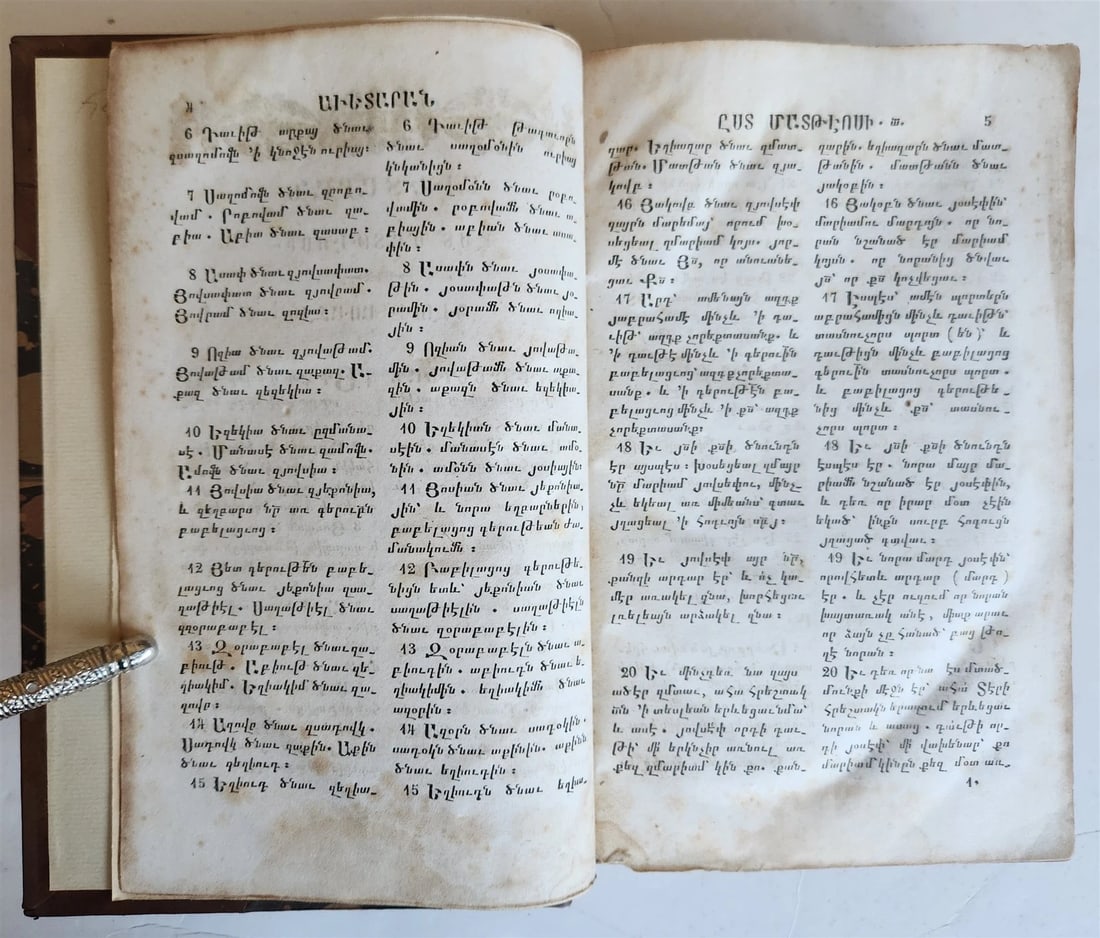 4
ԱՒԵՏԱՐԱՆ
6 Դաւիթ արքայ ծնաւ
զսաղոմովն ՚ի կնոջէն ուրիայ։
7 Սաղոմովն ծնաւ զրոբո֊
վամ. Րոբովամ ծնաւ զա֊
բիա. Աբիա ծնաւ զասաբ։
8 Ասափ ծնաւ զյովսափատ.
Յովսափատ ծնաւ զյովրամ.
Յովրամ ծնաւ զոզիա։
9 Ոզիա ծնաւ զյովաթամ.
Յովաթամ ծնաւ զաքազ. Ա֊
քազ ծնաւ զեզեկիա։
10 Եզեկիա ծնաւ ըզմանա֊
սէ. Մանասէ ծնաւ զամովն.
Ամովն ծնաւ զյովսիա։
11 Յովսիա ծնաւ զյեքոնիա,
և զեղբարս նր առ գերութբն
բաբելացւոց։
12 Յետ գերութեն բաբե֊
լացւոց ծնաւ յեքոնիա զսա֊
ղաթիէլ. Սաղաթիէլ ծնաւ
զզօրաբաբէլ։
13 Զօրաբաբէլ ծնաւ զա֊
բիութ. Աբիութ ծնաւ զե֊
ղիակիմ. Եղիակիմ ծնաւ զա֊
զովր։
14 Ազովր ծնաւ զսադովկ.
Սադովկ ծնաւ զաքին. Աքին
ծնաւ զեղիուդ։
15 Եղիուդ ծնաւ զեղիա֊
6 Դաւիթ թագաւորն
ծնաւ սաղօմօնին ուրիայ
կնկանիցն։
7 Սաղօմօնն ծնաւ րօբօ֊
վամին. րօբովամն ծնաւ ա֊
բիային. աբիան ծնաւ ասա֊
փին։
8 Ասափն ծնաւ յօսափա֊
թին. յօսափաթն ծնաւ յօ֊
րամին. յօրամն ծնաւ օզիա֊
յին։
9 Ոզիան ծնաւ յովաթա֊
մին. յովաթամն ծնաւ աքա֊
զին. աքազն ծնաւ եզեկիա֊
յին։
10 Եզեկիան ծնաւ մանա֊
սէին. մանասէն ծնաւ ամօ֊
նին. ամօնն ծնաւ յօսիային։
11 Յոսիան ծնաւ յեքոնիա֊
յին՝ և նորա եղբարներին,
բաբելացոց գերութեան ժա֊
մանակումն։
12 Բաբիլացոց գերութե֊
նիցն ետև՝ յեքոնիան ծնաւ
սաղաթիէլին. սաղաթիէլն
ծնաւ զօրաբաբէլին։
13 Զօրաբաբէլն ծնաւ ա֊
բիուդին. աբիուդն ծնաւ ե֊
ղիակիմին. եղիակիմն ծնաւ
ազօրին։
14 Ազօրն ծնաւ սադօկին.
սադօկն ծնաւ աքինին. աքինն
ծնաւ եղիուդին։
15 Եղիուդն ծնաւ եղիա֊
ԸՍՏ ՄԱՏԹԷՈՍԻ. ա.
5
զար. Եղիազար ծնաւ զմատ֊
թան. Մատթան ծնաւ զյա֊
կովբ։
16 Յակովբ ծնաւ զյովսէփ
զայրն մարեմայ՝ որում խօ֊
սեցեալ զմարիամ կոյս. յոր֊
մէ ծնաւ Յս, որ անուանե֊
ցաւ Քս։
17 Արդ՝ ամենայն ազգք
յաբրահամէ մինչև ՚ի դա֊
ւիթ՝ ազգք չորեքտասանք. և
՚ի դաւթէ մինչև ՚ի գերուին
բաբելացւոց՝ ազգք չորեքտա֊
սանք. և ՚ի գերութէն բա֊
բելացւոց մինչև ՚ի քս՝ ազգք
չորեքտասանք։
18 Եւ յսի քսի ծնունդն
էր այսպէս։ խօսեցեալ զմայր
նր մարիամ յովսեփու, մինչ֊
չև եկեալ առ միմեանս՝ գտաւ
յղացեալ ՚ի հոգւոյն սրյ։
19 Եւ յովսէփ այր նր,
քանզի արդար էր՝ և ոչ կա֊
մէր առակել զնա, խորհեցաւ
լռելեայն արձակել զնա։
20 Եւ մինչդեռ նա զայս
ածէր զմտաւ, ահա հրեշտակ
տն ՚ի տեսլեան երևեցաւ նմա՝
և ասէ. յովսէփ որդի դաւ֊
թի՝ մի երկնչիր առնուլ առ
քեզ զմարիամ՝ կին քո. քան֊
զարին. եղիազարն ծնաւ մատ֊
թանին. մատթանն ծնաւ
յակօբին։
16 Յակօբն ծնաւ յօսէփին՝
մարիամու մարդոյն. որ նո֊
րան նշանած էր մարիամ
կոյսն. որ նորանից ծնվաւ
յս՝ որ քս կոչվեցաւ։
17 Իսպէս՝ ամէն պորտերն
աբրահամիցն մինչև դաւիթն՝
տասնուչորս պորտ (են)՝ և
դաւթիցն մինչև բաբիլացոց
գերուիին տասնուչորս պորտ.
և բաբիլացոց գերութե֊
նից մինչև քս՝ տասնու֊
չորս պորտ.
18 Եւ յսի քսի ծնունդն
էսպէս էր. նորա մայր մա֊
րիամն նշանած էր յօսէփին,
և դեռ որ իրար մօտ չէին
եկած՝ ինքն սուրբ Հոգուցն
յղացած գտվաւ։
19 Եւ նորա մարդ յօսէփն՝
որովհետև արդար (մարդ)
էր. և չէր ուզում որ նորան
խայտառակ անէ, միտք արաւ
որ ձայն չը հանած՝ բաց թո֊
ղէ նորան։
20 Եւ դեռ որ նա էս մտած֊
մունքի մէջն էր՝ ահա Տէրի
հրեշտակն երազում երևեցաւ
նորան և ասաց. դաւթի որ֊
դի յօսէփ՝ մի վախենար՝ քո
մարիամ կինըն քեզ մօտ առ֊
1.